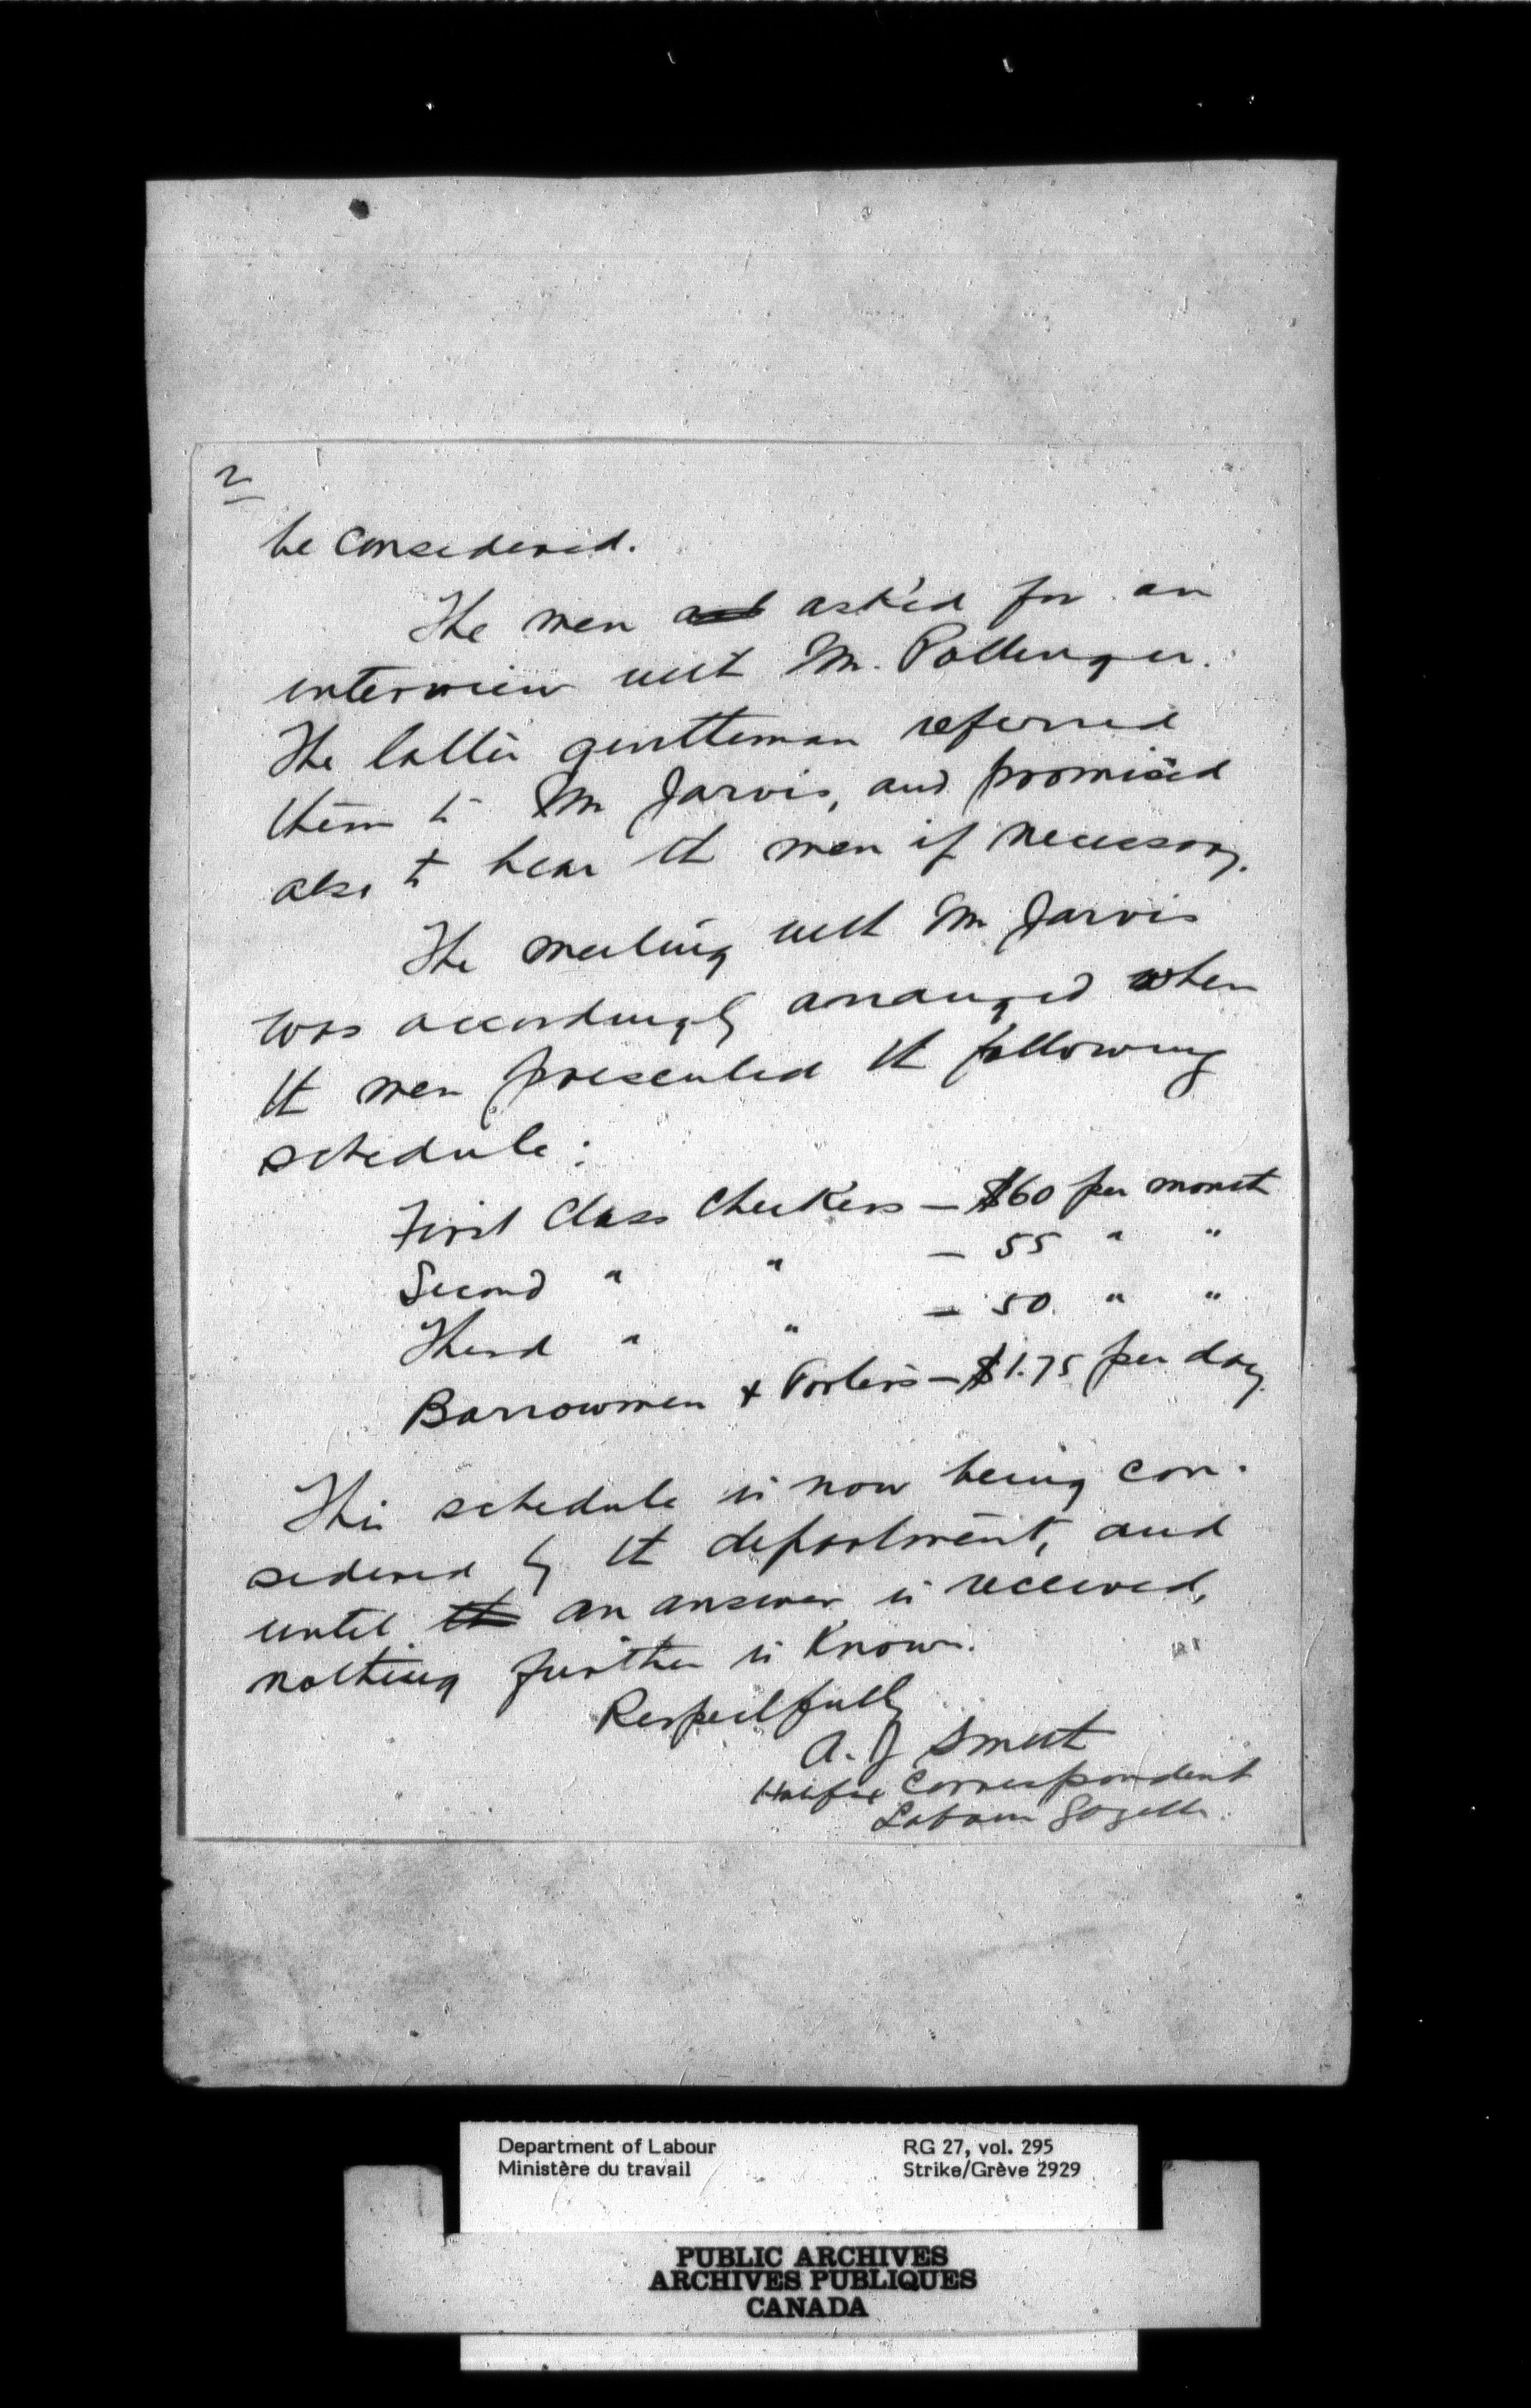 2
be considered.
The men asked for an
interview with Mr. Pottinger.
The latter gentleman referred
them to Mr Jarvis, and promised
also to hear the men if necessary.
The meeting with Mr Jarvis
was accordingly arranged when
the men presented the following
schedule:
First Class Checkers — $60 per month
Second " " — 55 " "
Third " " — 50. " "
Barrowmen & Porters — $1.75 per day.
This schedule is now being con-
sidered by the department, and
until the an answer is received,
nothing further is known.
Respectfully
A. J Smith
Halifax Correspondent
Labour Gazette.
Department of Labour
Ministère du travail
RG 27, vol. 295
Strike/Grève 2929
PUBLIC ARCHIVES
ARCHIVES PUBLIQUES
CANADA